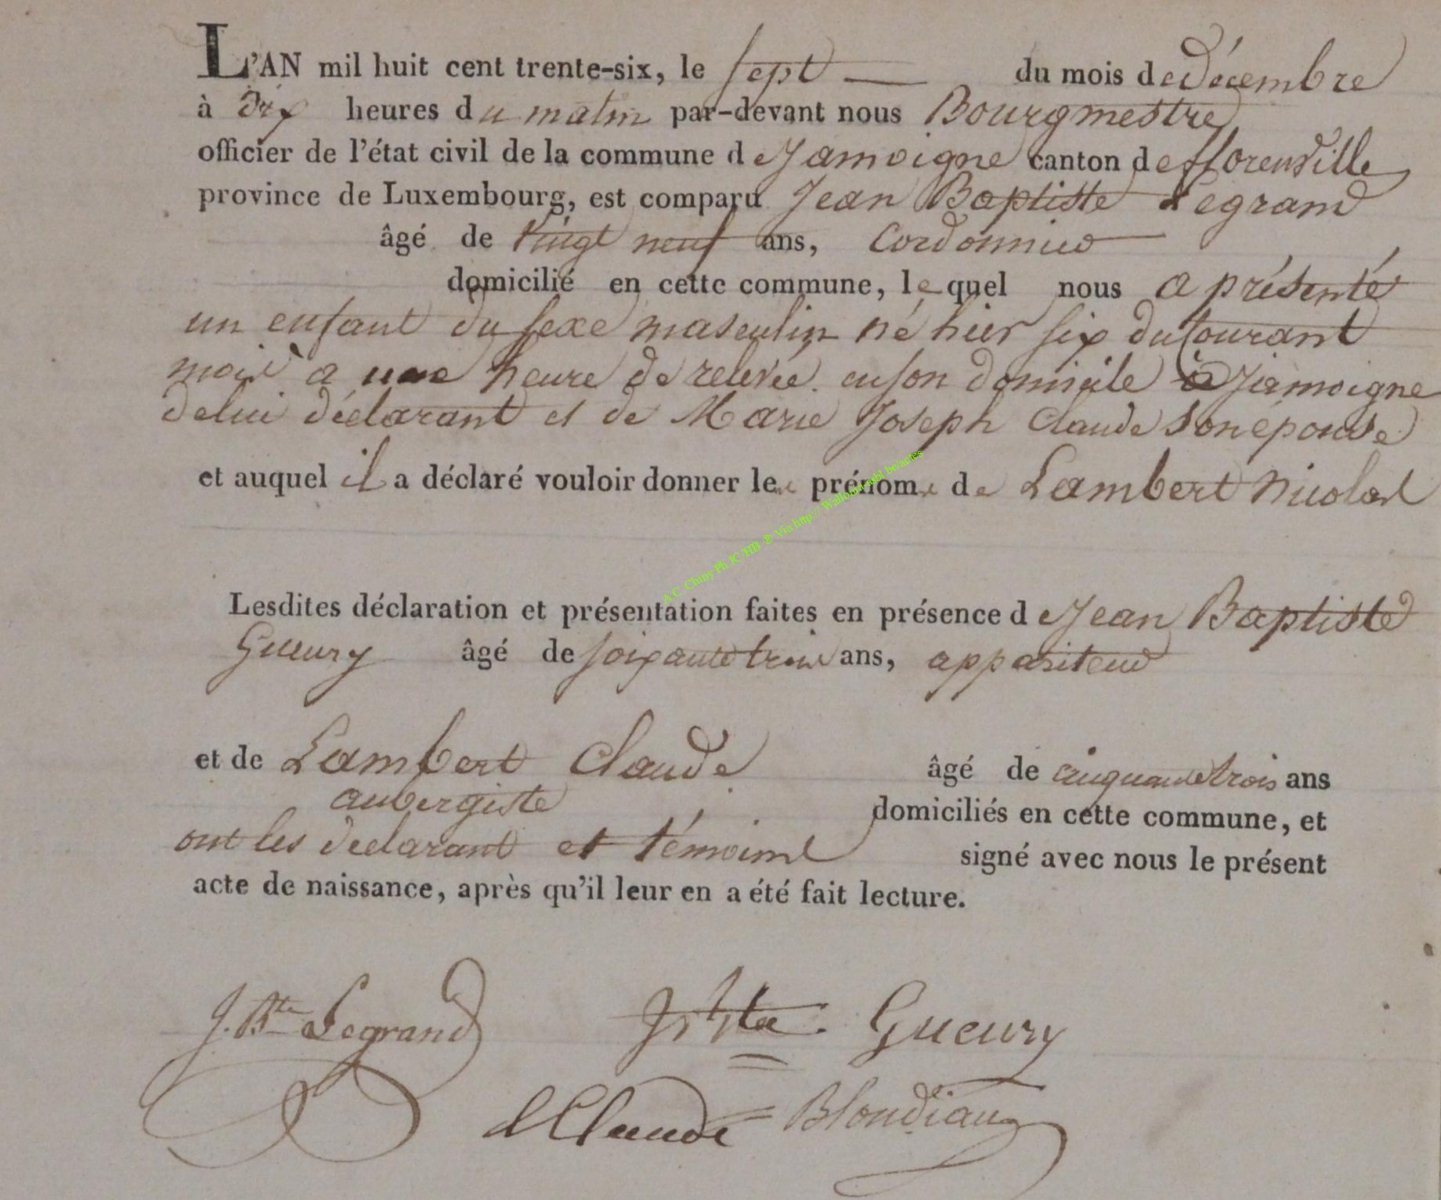 L'AN mil huit cent trente-six, le sept du mois de décembre
à dix heures du matin par-devant nous Bourgmestre
officier de l'état civil de la commune de Jamoigne canton de fflorenville
province de Luxembourg, est comparu Jean Baptiste Legrand
âgé de vingt neuf ans, Cordonnier
domicilié en cette commune, lequel nous a présenté
un enfant du sexe masculin né hier six du Courant
mois a une heure de relevée en son domicile à Jamoigne
de lui déclarant et de Marie Joseph Claude son épouse
et auquel il a déclaré vouloir donner les prénoms de Lambert Nicolas
Lesdites déclaration et présentation faites en présence de Jean Baptiste
Gueury âgé de soixante trois ans, appariteur
et de Lambert Claude âgé de cinquante trois ans
aubergiste domiciliés en cette commune, et
ont les déclarant et témoins signé avec nous le présent
acte de naissance, après qu'il leur en a été fait lecture.
J. Bte Legrand Gueury
LClaude Blondiau